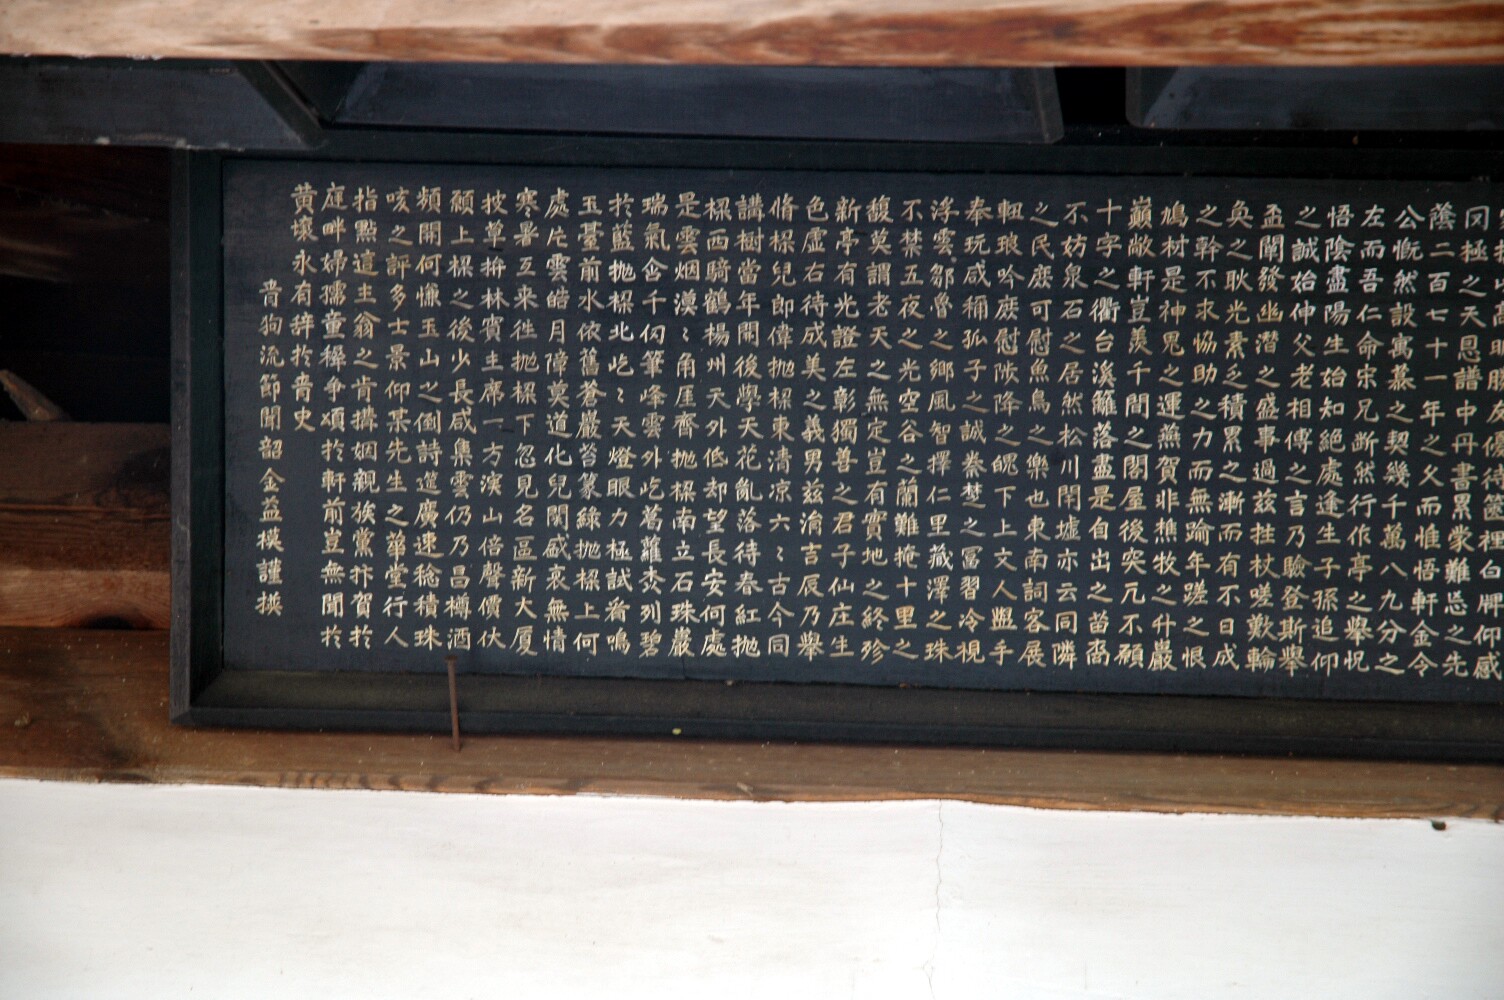 冈極之天恩譜中丹書累蒙難忘之先
蔭二百七十一年之父而惟悟軒金令
公慨然設寓慕之契幾千萬八九分之
左而吾仁命宋兄断然行作亭之舉怳
悟陰盡陽生始知絕處逢生子孫追仰
之誠始伸父老相傳之言乃驗登斯舉
盃闡發幽潛之盛事過茲拄杖嗟歎輪
奐之耿光素乏積累之漸而有不日成
之幹不求協助之力而無踰年蹉之恨
鳩村是神思之運燕賀非樵牧之升巖
巔敞軒豈羨千間之閎屋後突兀不願
十字之衢台溪籬落盡是自出之苗裔
不妨泉石之居然松川閈墟亦云同隣
之民庶可慰魚鳥之樂也東南詞客展
軔琅吟庶慰陟降之魄下上文人盥手
奉玩咸稱孤子之誠豢楚之冨習冷視
浮雲鄒魯之鄉風智擇仁里藏澤之珠
不禁五夜之光空谷之蘭難掩十里之
馥莫謂老天之無定豈有實地之終殄
新亭有光證左彰獨善之君子仙庄生
色虛右待成美之義男茲消吉辰乃舉
脩樑兒郎偉抛樑東清凉六〻古今同
講樹當年開後學天花亂落待春紅抛
樑西騎鶴楊州天外低却望長安何處
是雲烟漠〻角厓齊抛樑南立石珠巖
瑞氣含千仞筆峰雲外屹萬蘿森列碧
於藍抛樑北屹〻天燈眼力極試看鳴
玉臺前水依舊蒼巖苔篆綠抛樑上何
處片雲皓月障莫道化兒関盛衰無情
寒暑互来徃抛樑下忽見名區新大厦
披草拚林賓主席一方溪山倍聲價伏
願上樑之後少長咸集雲仍乃昌樽酒
頻開何慊玉山之倒詩筵廣速稔積珠
咳之評多士景仰某先生之華堂行人
指點這主翁之肯搆姻親族黨抃賀於
庭畔婦孺童穉争頌於軒前豈無聞於
黄壤永有辞於青史
青狗流節聞韶金益模謹撰